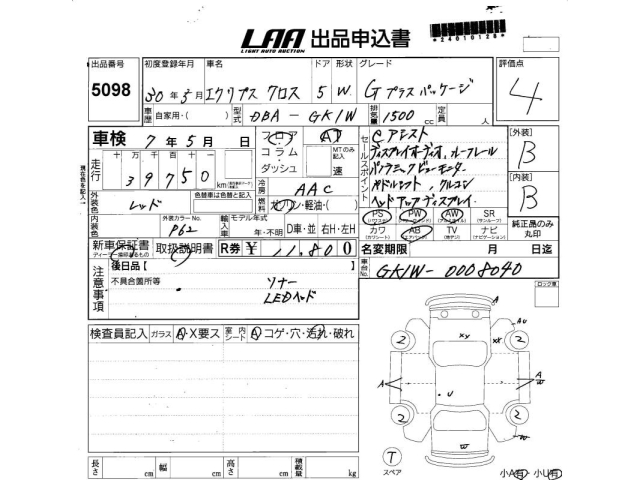 LAA 出品申込書
LIGHT AUTO AUCTION
*24010128*
出品番号 初度登録年月 車名 ドア 形状 グレード 評価点
5098 30年5月 エクリプス クロス 5 W. G プラス パッケージ 4
車歴 自家用・( ) 型式 DBA - GK1W 排気量 1500 cc 定員 人
車検 7年5月 日 フロア AT
コラム・ MTのみ記入
ダッシュ 速
走行 十万 万 千 百 十
39750 km
現在色を記入
外装色 レッド 色替車は色替と記入
冷房 AAC
燃料 ガソリン・軽油・( )
外装カラーNo. P62
輸入車 モデル年式 年・不明 D車・並 右H・左H
新車保証書 取扱説明書 R券 ¥ 11,800
ディーラー捺印あるもの
セールスポイント
eアシスト
ディスプレイオーディオ, ルーフレール
パノラミックビューモニター
パドルシフト, クルコン
ヘッドアップディスプレイ
PS PW AW SR
(パワステ) (パワーウインド) (アルミホイル) (サンルーフ)
カワ AB TV ナビ
(カワシート) (エアバッグ) (地デジ) (ナビゲーション)
純正品のみ丸印
【外装】
B
【内装】
B
名変期限 月 日迄
車台No. GK1W-0008040
注意事項
後日品【 】
不具合箇所等 ソナー
LEDヘッド
ロック車
検査員記入 ガラス A・X要ス 室内シート A コゲ・穴・汚れ・破れ
長さ cm 幅 cm 高さ cm 積載量 kg
A
AU
XY
XX
2 2
A A
W
U
2 2
W
W
T
スペア
小A有・小U有